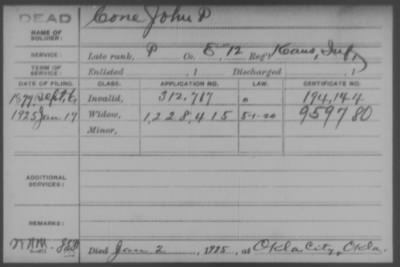 DEAD
NAME OF SOLDIER: Cone John P
SERVICE: Late rank, P Co. E, 12 Reg't Kans. Inf.
TERM OF SERVICE: Enlisted , 1 Discharged , 1
DATE OF FILING. CLASS. APPLICATION NO. LAW. CERTIFICATE NO.
1879 Sept. 6 Invalid, 312,717 194,144
1925 Jan 17 Widow, 1,228,415 5-1-20 959780
Minor,
ADDITIONAL SERVICES:
REMARKS:
Died Jan 2, 1925, at Okla City, Okla.